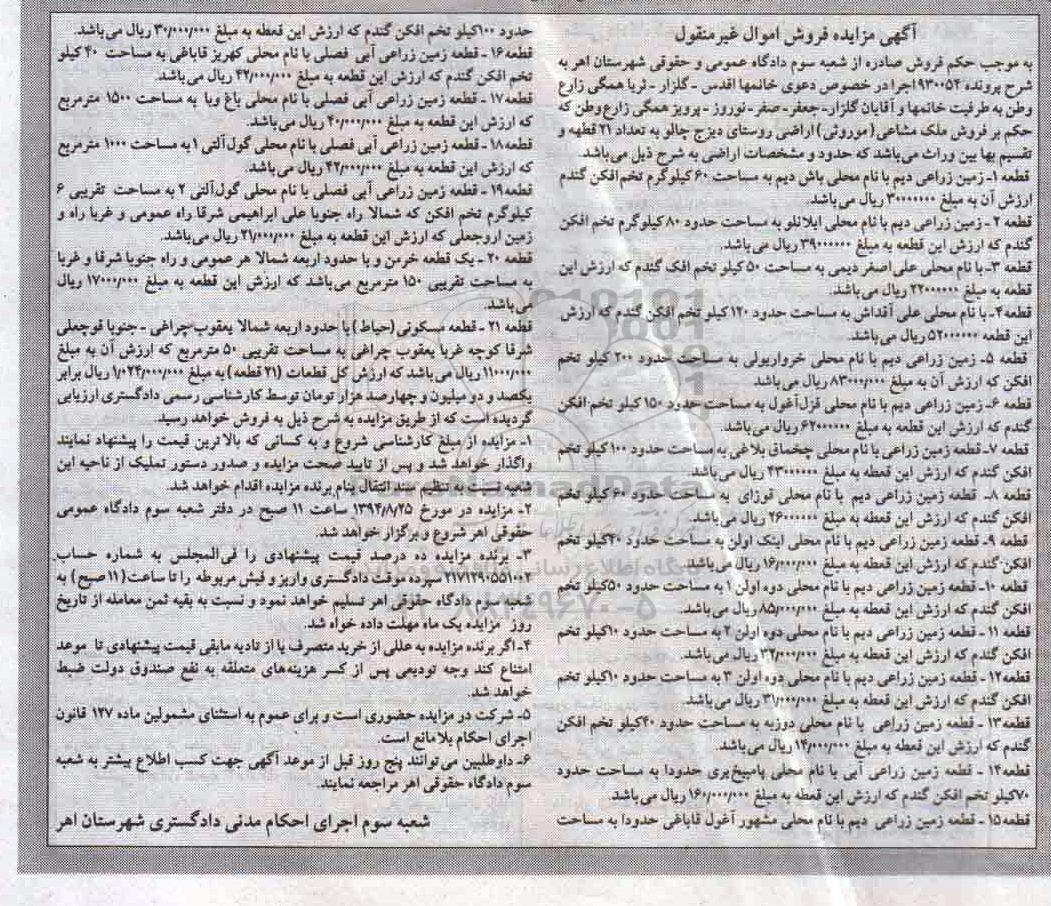 آگهی مزایده فروش اموال غیرمنقول
به موجب حکم فروش صادره از شعبه سوم دادگاه عمومی و حقوقی شهرستان اهر به
شرح پرونده ۹۳۰۰۵۲ اجرا در خصوص دعوی خانمها اقدس - گلزار - ثریا همگی زارع
وطن به طرفیت خانمها و آقایان گلزار- جعفر- صفر- نوروز - پرویز همگی زارع وطن که
حکم بر فروش ملک مشاعی (موروثی) اراضی روستای دیزج چالو به تعداد ۲۱ قطهه و
تقسیم بها بین وراث می‌باشد که حدود و مشخصات اراضی به شرح ذیل می‌باشد.
قطعه ۱- زمین زراعی دیم با نام محلی باش دیم به مساحت ۶۰ کیلوگرم تخم افکن گندم
ارزش آن به مبلغ ۳۰۰۰۰۰۰۰ ریال می‌باشد.
قطعه ۲ - زمین زراعی دیم با نام محلی ایلانلو به مساحت حدود ۸۰ کیلوگرم تخم افکن
گندم که ارزش این قطعه به مبلغ ۳۹۰۰۰۰۰۰ ریال می‌باشد.
قطعه ۳- با نام محلی علی اصغر دیمی به مساحت ۵۰ کیلو تخم افک گندم که ارزش این
قطعه به مبلغ ۲۲۰۰۰۰۰۰ ریال می‌باشد.
قطعه ۴- با نام محلی علی آقداش به مساحت حدود ۱۲۰ کیلو تخم افکن گندم که ارزش
این قطعه ۵۲۰۰۰۰۰۰ ریال می‌باشد.
قطعه ۵- زمین زراعی دیم با نام محلی خرواریولی به مساحت حدود ۲۰۰ کیلو تخم
افکن که ارزش آن به مبلغ ۸۳۰۰۰/۰۰۰ ریال می‌باشد
قطعه ۶- زمین زراعی دیم با نام محلی قزل آغول به مساحت حدود ۱۵۰ کیلو تخم افکن
گندم که ارزش این قطعه به مبلغ ۶۲۰۰۰۰۰۰ ریال می‌باشد.
قطعه ۷- قطعه زمین زراعی با نام محلی چخماق بلاغی به مساحت حدود ۱۰۰ کیلو تخم
افکن گندم که ارزش این قعطه به مبلغ ۴۳۰۰۰۰۰۰ ریال می‌باشد
قطعه ۸- قطعه زمین زراعی دیم با نام محلی قوزای به مساحت حدود ۶۰ کیلو تخم
افکن گندم که ارزش این قعطه به مبلغ ۲۶۰۰۰۰۰۰ ریال می‌باشد.
قطعه ۹- قطعه زمین زراعی دیم با نام محلی اینک اولن به مساحت حدود ۴۰کیلو تخم
افکن گندم که ارزش این قعطه به مبلغ ۱۶/۰۰۰/۰۰۰ ریال می‌باشد
قطعه ۱۰- قطعه زمین زراعی دیم با نام محلی دوه اولن ۱ به مساحت حدود ۵۰کیلو تخم
افکن گندم که ارزش این قعطه به مبلغ ۸۵/۰۰۰/۰۰۰ ریال می‌باشد.
قطعه ۱۱ - قطعه زمین زراعی دیم با نام محلی دوه اولن ۲ به مساحت حدود ۱۰کیلو تخم
افکن گندم که ارزش این قعطه به مبلغ ۳۲/۰۰۰/۰۰۰ ریال می‌باشد.
قطعه۱۲- قطعه زمین زراعی دیم با نام محلی دوه اولن ۳ به مساحت حدود ۱۰کیلو تخم
افکن گندم که ارزش این قعطه به مبلغ ۳۱/۰۰۰/۰۰۰ ریال می‌باشد.
قطعه۱۳ - قطعه زمین زراعی با نام محلی دوزبه به مساحت حدود ۴۰کیلو تخم افکن
گندم که ارزش این قعطه به مبلغ ۱۴/۰۰۰/۰۰۰ ریال می‌باشد.
قطعه۱۴ - قطعه زمین زراعی آبی با نام محلی پامبیخ‌یری حدودا به مساحت حدود
۷۰کیلو تخم افکن گندم که ارزش این قعطه به مبلغ ۱۶۰/۰۰۰/۰۰۰ ریال می‌باشد.
قطعه۱۵ - قطعه زمین زراعی دیم با نام محلی مشهور آغول قاباغی حدودا به مساحت
حدود ۱۰۰کیلو تخم افکن گندم که ارزش این قعطه به مبلغ ۳۰/۰۰۰/۰۰۰ ریال می‌باشد.
قطعه۱۶ - قطعه زمین زراعی آبی فصلی با نام محلی کهریز قاباغی به مساحت ۴۰ کیلو
تخم افکن گندم که ارزش این قطعه به مبلغ ۴۲/۰۰۰/۰۰۰ ریال می‌باشد.
قطعه۱۷ - قطعه زمین زراعی آبی فصلی با نام محلی باغ ویا به مساحت ۱۵۰۰ مترمربع
که ارزش این قطعه به مبلغ ۴۰/۰۰۰/۰۰۰ ریال می‌باشد.
قطعه۱۸ - قطعه زمین زراعی آبی فصلی با نام محلی گول آلتی ۱ به مساحت ۱۰۰۰ مترمربع
که ارزش این قطعه به مبلغ ۴۲/۰۰۰/۰۰۰ ریال می‌باشد.
قطعه۱۹ - قطعه زمین زراعی آبی فصلی با نام محلی گول آلتی ۲ به مساحت تقریبی ۶
کیلوگرم تخم افکن که شمالا راه جنوبا علی ابراهیمی شرقا راه عمومی و غربا راه و
زمین اروجعلی که ارزش این قطعه به مبلغ ۲۱/۰۰۰/۰۰۰ ریال می‌باشد.
قطعه ۲۰ - یک قطعه خرمن و با حدود اربعه شمالا هر عمومی و راه جنوبا شرقا و غربا
به مساحت تقریبی ۱۵۰ مترمربع می‌باشد که ارزش این قطعه به مبلغ ۱۷۰۰۰/۰۰۰ ریال
می‌باشد.
قطعه ۲۱ - قطعه مسکونی (حیاط) با حدود اربعه شمالا یعقوب چراغی - جنوبا قوجعلی
شرقا کوچه غربا یعقوب چراغی به مساحت تقریبی ۵۰ مترمربع که ارزش آن به مبلغ
۱۱۰۰۰/۰۰۰ ریال می باشد که ارزش کل قطعات (۲۱ قطعه) به مبلغ ۱/۰۲۴/۰۰۰/۰۰۰ ریال برابر
یکصد و دو میلیون و چهارصد هزار تومان توسط کارشناسی رسمی دادگستری ارزیابی
گردیده است که از طریق مزایده به شرح ذیل به فروش خواهد رسید.
۱- مزایده از مبلغ کارشناسی شروع و به کسانی که بالاترین قیمت را پیشنهاد نمایند
واگذار خواهد شد و پس از تایید صحت مزایده و صدور دستور تملیک از ناحیه این
شعبه نسبت به تنظیم سند انتقال بنام برنده مزایده اقدام خواهد شد.
۲- مزایده در مورخ ۱۳۹۴/۸/۲۵ ساعت ۱۱ صبح در دفتر شعبه سوم دادگاه عمومی
حقوقی اهر شروع و برگزار خواهد شد.
۳- برنده مزایده ده درصد قیمت پیشنهادی را فی‌المجلس به شماره حساب
۲۱۷۱۲۹۰۵۵۱۰۰۲ سپرده موقت دادگستری واریز و فیش مربوطه را تا ساعت (۱۱ صبح) به
شعبه سوم دادگاه حقوقی اهر تسلیم خواهد نمود و نسبت به بقیه ثمن معامله از تاریخ
روز مزایده یک ماه مهلت داده خواه شد.
۴- اگر برنده مزایده به عللی از خرید متصرف یا از تادیه مابقی قیمت پیشنهادی تا موعد
امتناع کند وجه تودیعی پس از کسر هزینه‌های متعلقه به نفع صندوق دولت ضبط
خواهد شد.
۵- شرکت در مزایده حضوری است و برای عموم به استثنای مشمولین ماده ۱۲۷ قانون
اجرای احکام بلامانع است.
۶- داوطلبین می‌توانند پنج روز قبل از موعد آگهی جهت کسب اطلاع بیشتر به شعبه
سوم دادگاه حقوقی اهر مراجعه نمایند.
شعبه سوم اجرای احکام مدنی دادگستری شهرستان اهر